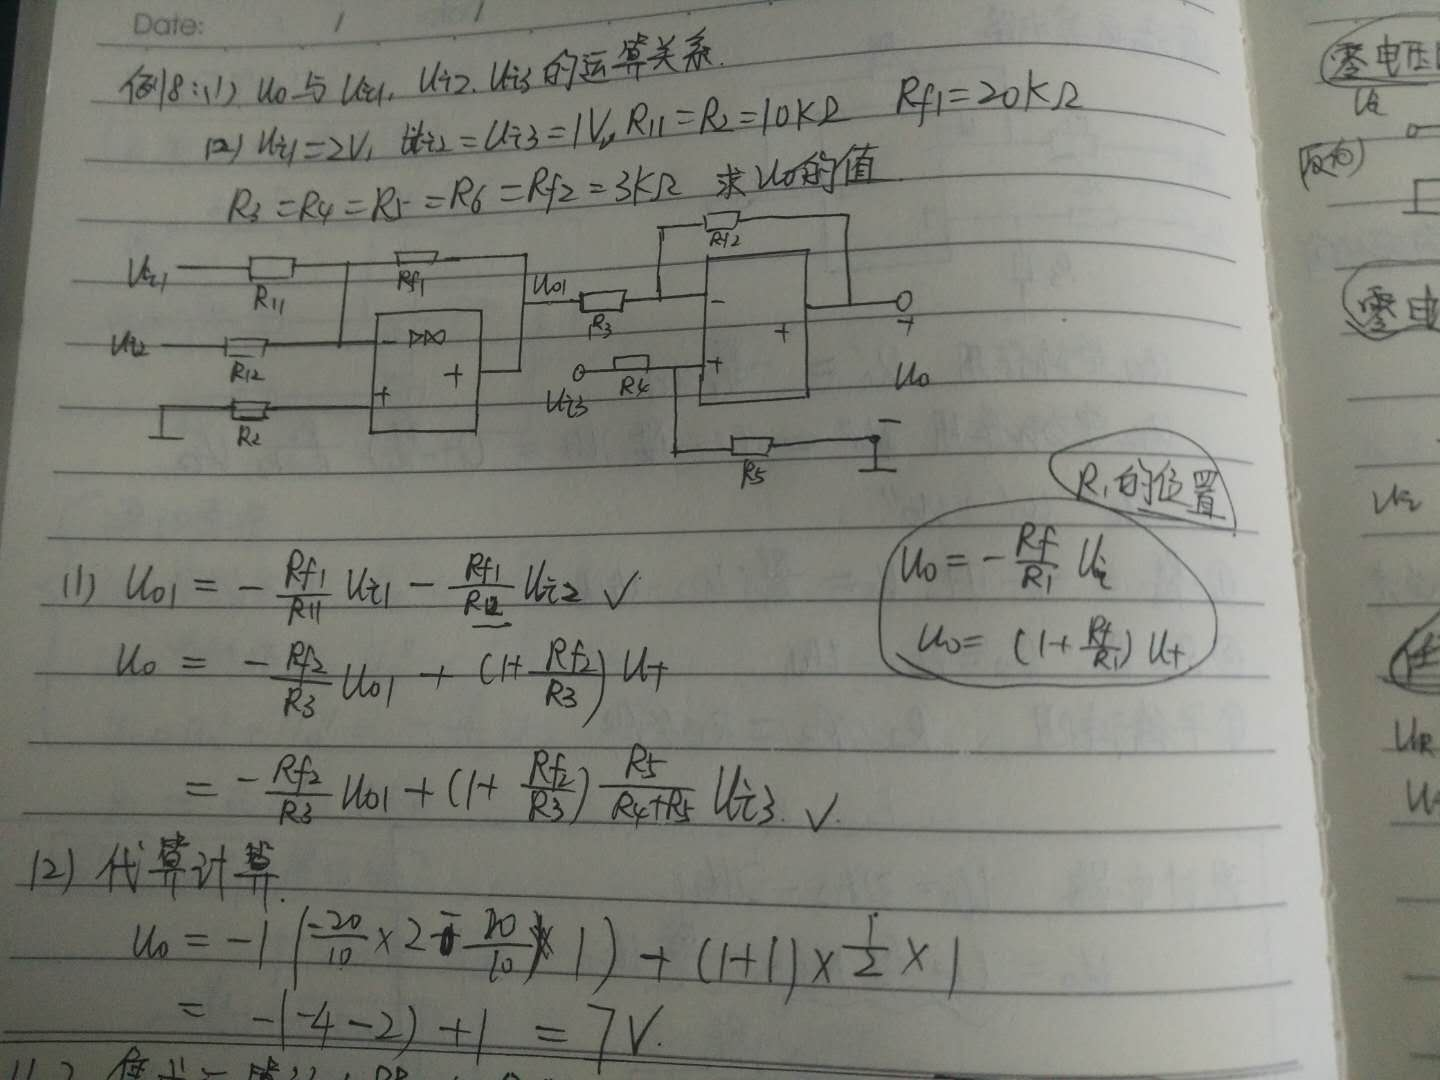 Date: / /
例8:(1) Uo与Ui1, Ui2. Ui3的运算关系.
(2) Ui1=2V, Ui2=Ui3=1V, R11=R2=10KΩ Rf1=20KΩ
R3=R4=R5=R6=Rf2=3KΩ 求Uo的值
Ui1
R11
Rf1
Ui2
R12
- ▷∞
+
+
R2
Uo1
R3
Rf2
-
+
+
Ui3
R4
R5
+
Uo
-
R1的位置
Uo=-Rf/R1 Ui
Uo=(1+Rf/R1) U+
(1) Uo1 = -Rf1/R11 Ui1 - Rf1/R12 Ui2 ✓
Uo = -Rf2/R3 Uo1 + (1+Rf2/R3) U+
= -Rf2/R3 Uo1 + (1+Rf2/R3) R5/(R4+R5) Ui3. ✓.
(2) 代算计算.
Uo = -1 (-20/10 ×2 - 20/10 × 1) + (1+1) × 1/2 × 1
= -(-4-2) +1 = 7V.
零电压
Ui
反向
零电
Ui
UR